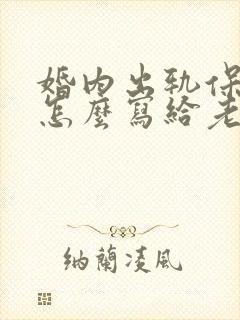 婚内出軌保
怎麼寫給老
納蘭凌風